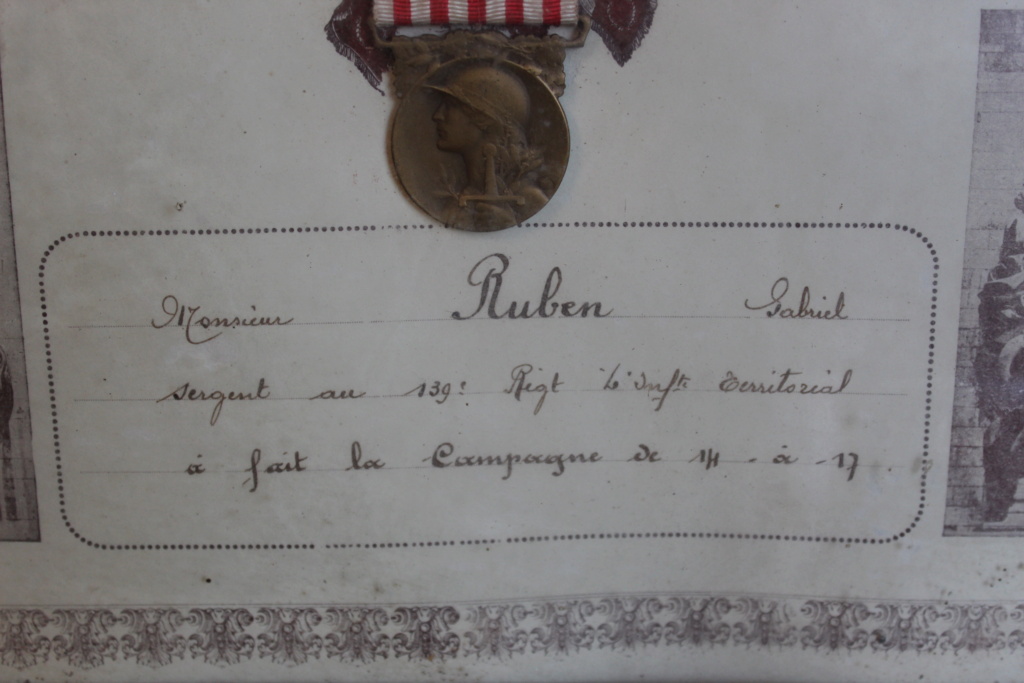 Monsieur Ruben Gabriel
sergent au 139e Rigt d'Infte Territorial
à fait la Campagne de 14 - à - 17.